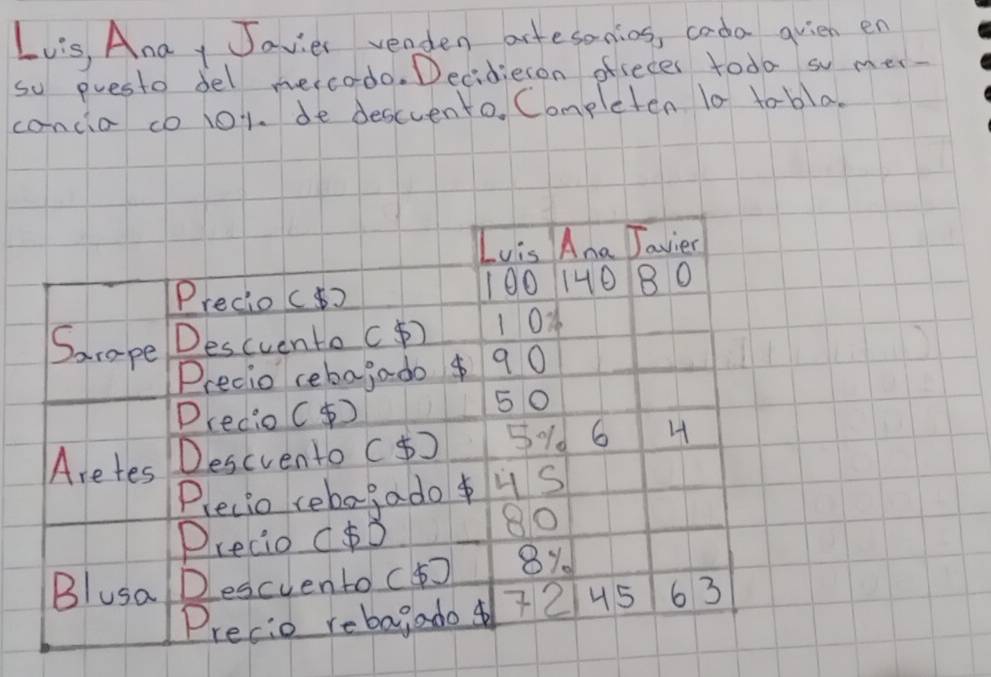 Luis, Ana y Javier venden artesanias, cada quien en
su puesto del mercado. Decidieron ofrecer toda su mer-
cancia co 10%. de descuento. Completen la tabla.
Luis Ana Javier
Sarape
Precio ($) 100 140 80
Descuento ($) 10%
Precio rebajado $ 90
Aretes
Precio ($) 50
Descuento ($) 5% 6 4
Precio rebajado $ 45
Blusa
Precio ($) 80
Descuento ($) 8%
Precio rebajado $ 72 45 63